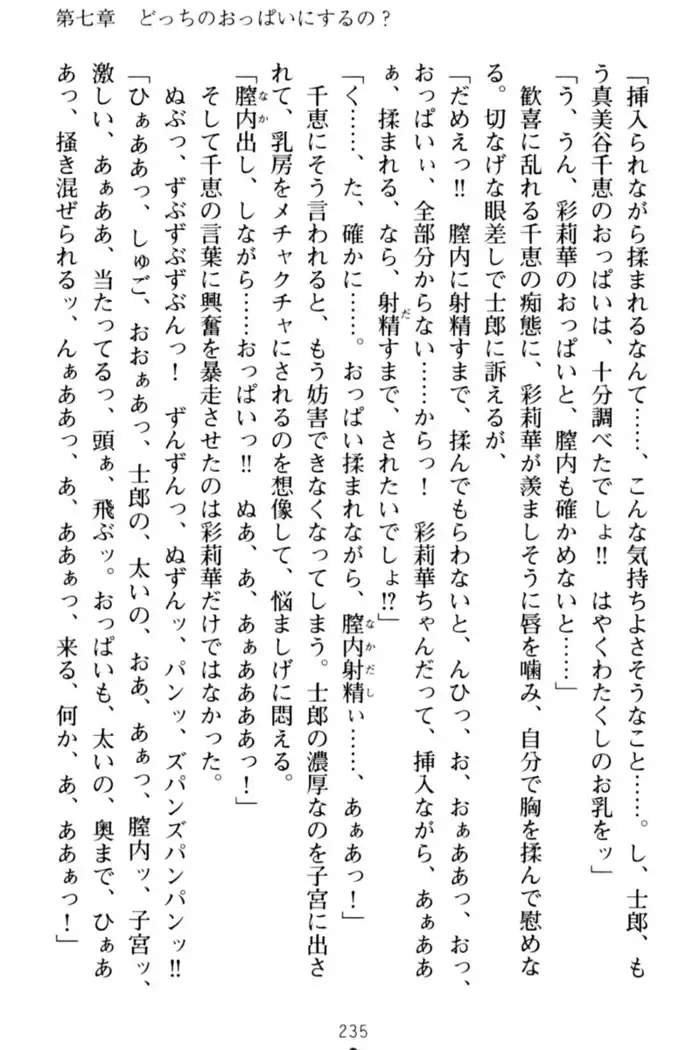 第七章　どっちのおっぱいにするの？
「挿入られながら揉まれるなんて……、こんな気持ちよさそうなこと……。し、士郎、も
う真美谷千恵のおっぱいは、十分調べたでしょ‼　はやくわたくしのお乳をッ」
「う、うん、彩莉華のおっぱいと、膣内も確かめないと……」
　歓喜に乱れる千恵の痴態に、彩莉華が羨ましそうに唇を噛み、自分で胸を揉んで慰めな
る。切なげな眼差しで士郎に訴えるが、
「だめえっ‼　膣内に射精すまで、揉んでもらわないと、んひっ、お、おぁああっ、おっ、
おっぱいぃ、全部分からない……からっ！　彩莉華ちゃんだって、挿入ながら、あぁああ
ぁ、揉まれる、なら、射精すまで、されたいでしょ⁉」
「く……、た、確かに……。おっぱい揉まれながら、膣内射精ぃ……、あぁあっ！」
　千恵にそう言われると、もう妨害できなくなってしまう。士郎の濃厚なのを子宮に出さ
れて、乳房をメチャクチャにされるのを想像して、悩ましげに悶える。
「膣内出し、しながら……おっぱいっ‼　ぬあ、あ、あぁああああっ！」
　そして千恵の言葉に興奮を暴走させたのは彩莉華だけではなかった。
　ぬぶっ、ずぶずぶずぶんっ！　ずんずんっ、ぬずんッ、パンッ、ズパンズパンパンッ‼
「ひぁああっ、しゅご、おおぁあっ、士郎の、太いの、おあ、あぁっ、膣内ッ、子宮ッ、
激しい、あぁああ、当たってるっ、頭ぁ、飛ぶッ。おっぱいも、太いの、奥まで、ひぁあ
あっ、掻き混ぜられるッ、んぁああっ、あ、ああぁっ、来る、何か、あ、ああぁっ！」
235